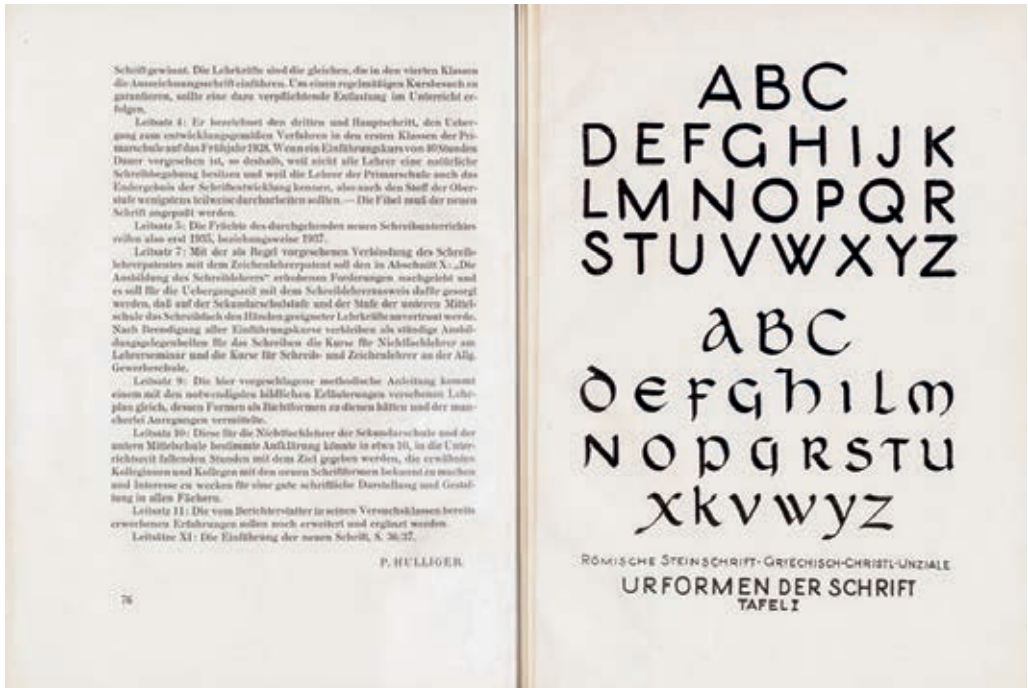 Schrift gewinnt. Die Lehrkräfte sind die gleichen, die in den vierten Klassen
die Auszeichnungsschrift einführen. Um einen regelmäßigen Kursbesuch zu
garantieren, sollte eine dazu verpflichtende Entlastung im Unterricht er-
folgen.
Leitsatz 4: Er bezeichnet den dritten und Hauptschritt, den Ueber-
gang zum entwicklungsgemäßen Verfahren in den ersten Klassen der Pri-
marschule auf das Frühjahr 1928. Wenn ein Einführungskurs von 40 Stunden
Dauer vorgesehen ist, so deshalb, weil nicht alle Lehrer eine natürliche
Schreibbegabung besitzen und weil die Lehrer der Primarschule auch das
Endergebnis der Schriftentwicklung kennen, also auch den Stoff der Ober-
stufe wenigstens teilweise durcharbeiten sollten. — Die Fibel muß der neuen
Schrift angepaßt werden.
Leitsatz 5: Die Früchte des durchgehenden neuen Schreibunterrichtes
reifen also erst 1935, beziehungsweise 1937.
Leitsatz 7: Mit der als Regel vorgesehenen Verbindung des Schreib-
lehrerpatentes mit dem Zeichenlehrerpatent soll den in Abschnitt X: „Die
Ausbildung des Schreiblehrers“ erhobenen Forderungen nachgelebt und
es soll für die Uebergangszeit mit dem Schreiblehrerausweis dafür gesorgt
werden, daß auf der Sekundarschulstufe und der Stufe der unteren Mittel-
schule das Schreibfach den Händen geeigneter Lehrkräfte anvertraut werde.
Nach Beendigung aller Einführungskurse verbleiben als ständige Ausbil-
dungsgelegenheiten für das Schreiben die Kurse für Nichtfachlehrer am
Lehrerseminar und die Kurse für Schreib- und Zeichenlehrer an der Allg.
Gewerbeschule.
Leitsatz 9: Die hier vorgeschlagene methodische Anleitung kommt
einem mit den notwendigsten bildlichen Erläuterungen versehenen Lehr-
plan gleich, dessen Formen als Richtformen zu dienen hätten und der man-
cherlei Anregungen vermittelte.
Leitsatz 10: Diese für die Nichtfachlehrer der Sekundarschule und der
untern Mittelschule bestimmte Aufklärung könnte in etwa 10, in die Unter-
richtszeit fallenden Stunden mit dem Ziel gegeben werden, die erwähnten
Kolleginnen und Kollegen mit den neuen Schriftformen bekannt zu machen
und Interesse zu wecken für eine gute schriftliche Darstellung und Gestal-
tung in allen Fächern.
Leitsatz 11: Die vom Berichterstatter in seinen Versuchsklassen bereits
erworbenen Erfahrungen sollen noch erweitert und ergänzt werden.
Leitsätze XI: Die Einführung der neuen Schrift, S. 36/37.
P. HULLIGER.
76
ABC
DEFGHIJK
LMNOPQR
STUVWXYZ
ABC
DEFGHILM
NOPQRSTU
XKVWYZ
RÖMISCHE STEINSCHRIFT-GRIECHISCH-CHRISTL-UNZIALE
URFORMEN DER SCHRIFT
TAFEL I